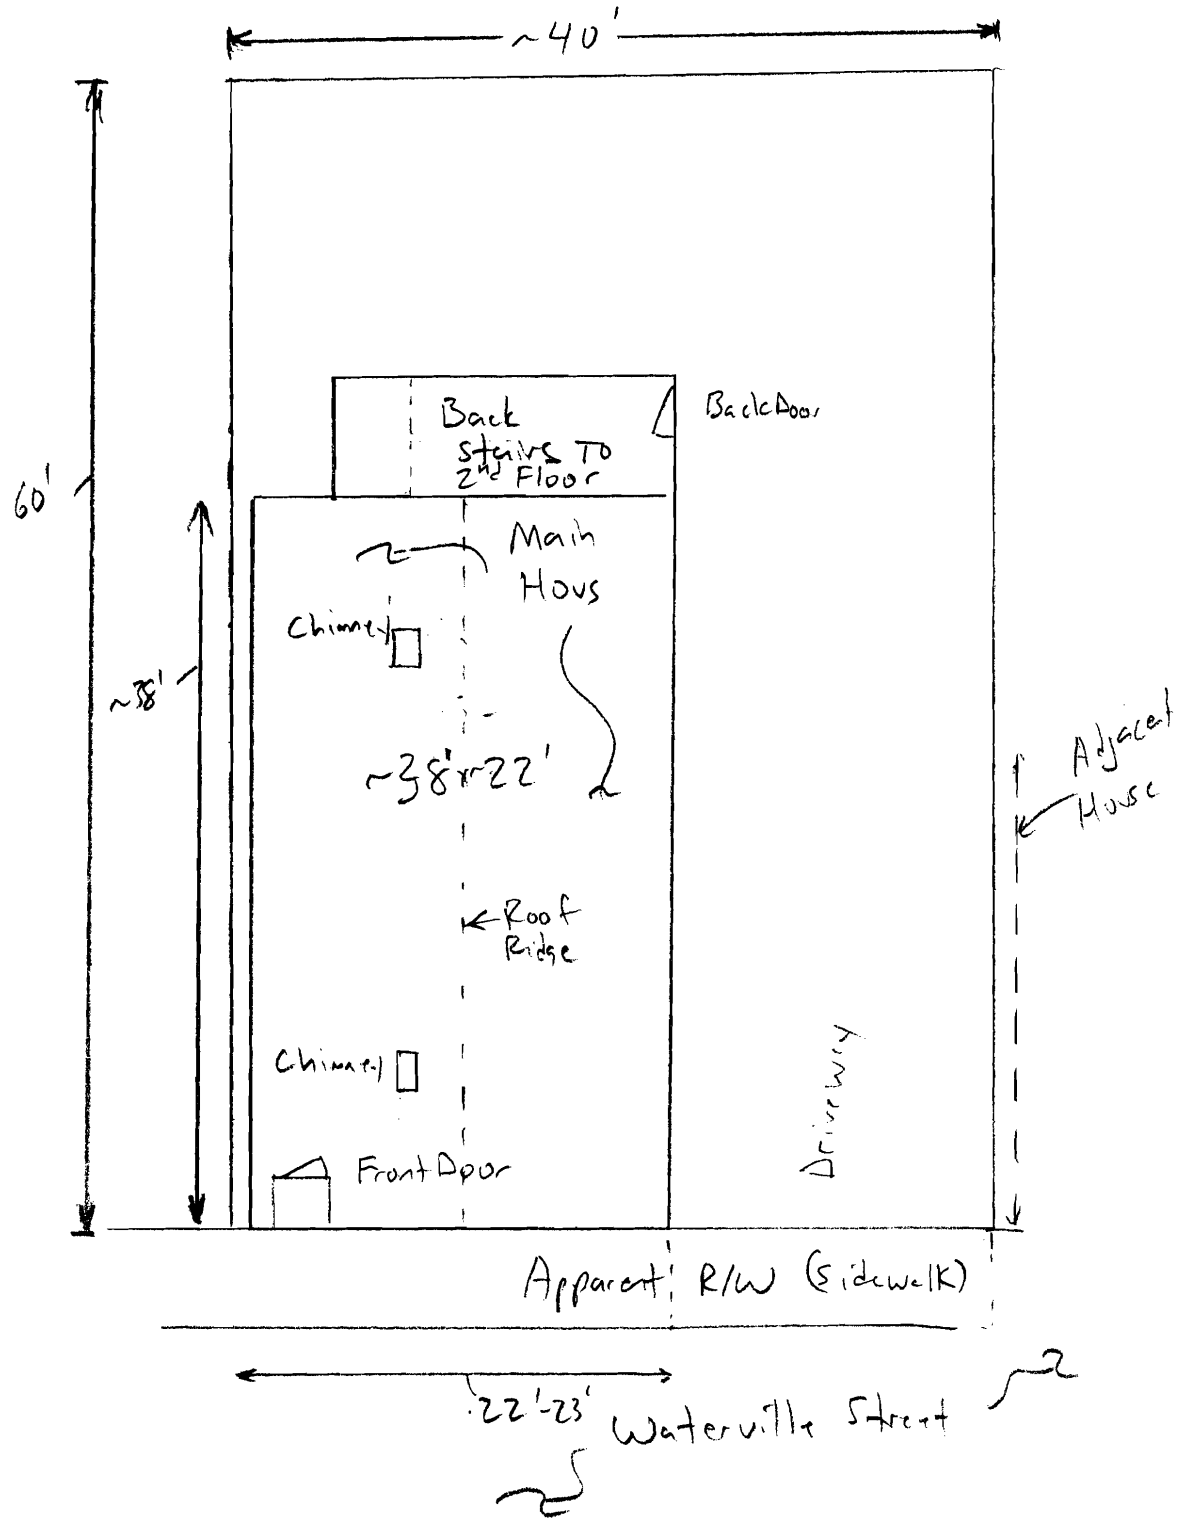 ~40'
Back
Stairs To
2nd Floor
BackDoor
60'
Main
Hous
Chimney
~38'
~38'x~22'
Adjacent
House
Roof
Ridge
Driveway
Chimney
Front Door
Apparent R/W (Sidewalk)
22'-23'
Waterville Street